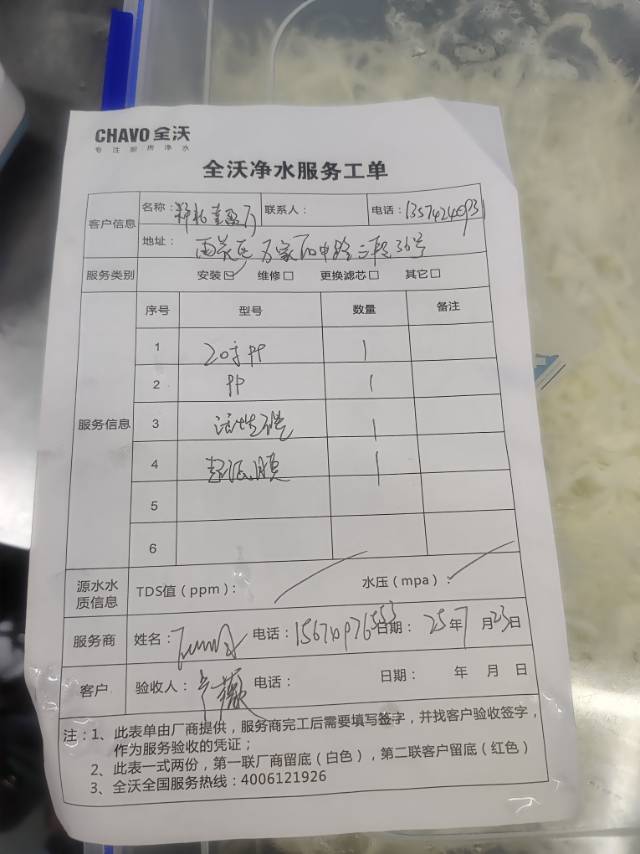 CHAVO 全沃
专注厨房净水
全沃净水服务工单
客户信息 名称： 联系人： 电话：
地址：雨花区万家丽中路三段36号
服务类别 安装☑ 维修□ 更换滤芯□ 其它□
服务信息 序号 型号 数量 备注
1 20寸PP 1
2 PP 1
3 活性炭 1
4 超滤膜 1
5
6
源水水质信息 TDS值（ppm）： 水压（mpa）：
服务商 姓名： 电话： 日期：25年7月23日
客户 验收人： 电话： 日期： 年 月 日
注：1、此表单由厂商提供，服务商完工后需要填写签字，并找客户验收签字，
作为服务验收的凭证；
2、此表一式两份，第一联厂商留底（白色），第二联客户留底（红色）
3、全沃全国服务热线：4006121926